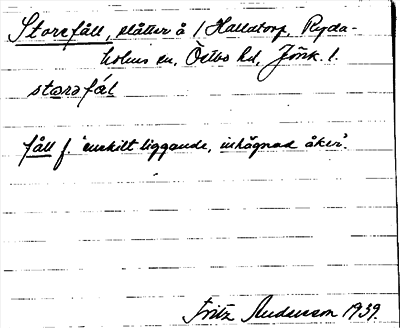 Storefåll, slåtter å 1 Hallatorp, Ryda-
holms sn, Östbo hd, Jönk. l.
storəfål
fåll f. 'enskilt liggande, inhägnad åker'.
Fritz Andersson 1939.